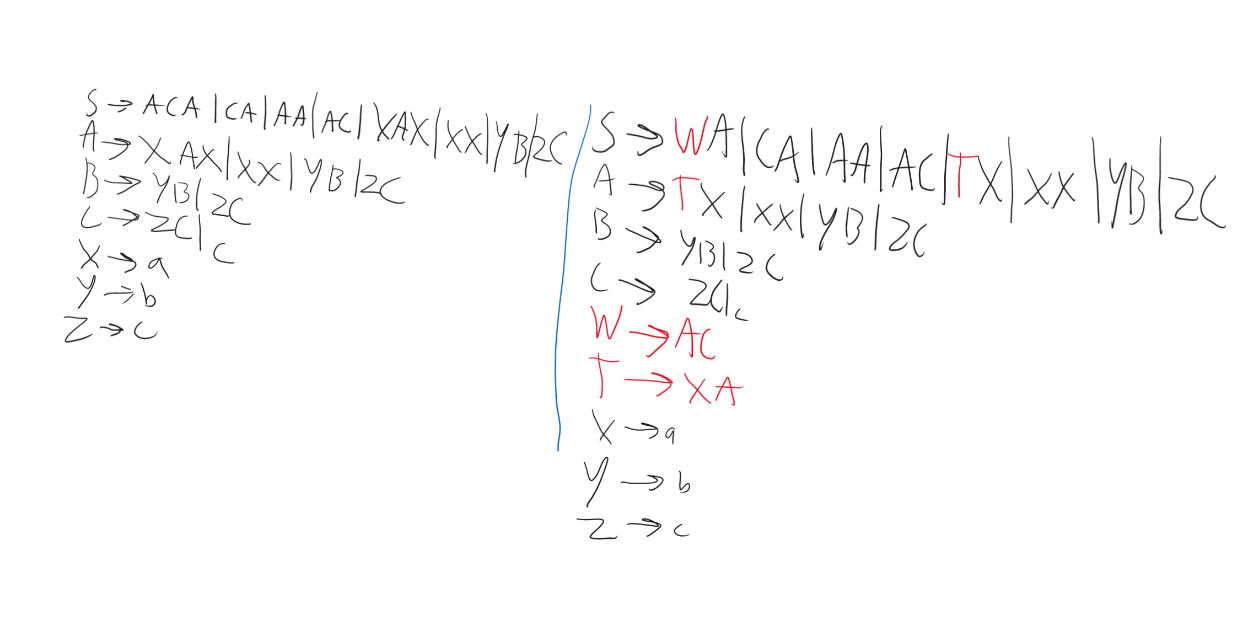 S → ACA | CA | AA | AC | XAX | XX | YB | ZC
A → XAX | XX | YB | ZC
B → YB | ZC
C → ZC | C
X → a
Y → b
Z → c
S → WA | CA | AA | AC | TX | XX | YB | ZC
A → TX | XX | YB | ZC
B → YB | ZC
C → ZC | c
W → AC
T → XA
X → a
Y → b
Z → c